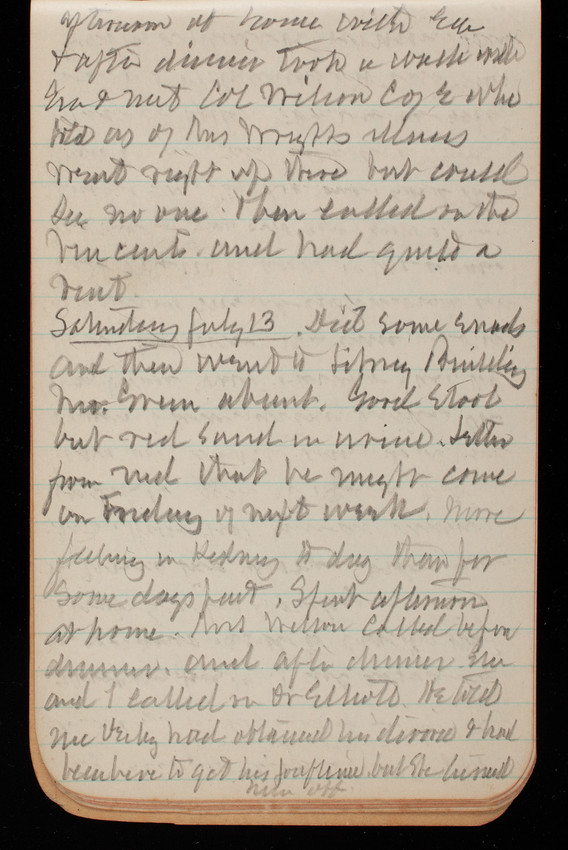 afternoon at home with Eva
& after dinner took a walk with
Eva & met Col Wilson Coy E who
told us of Mrs Wrights illness
went right up there but could
see no one. Then called on the
Vincents. and had quite a
visit.
Saturday July 13. Did some errands
and then went to Building
Mr. Green absent. Good Stool
but red Sand in urine. Letter
from ned that he might come
on Friday of next week. More
feeling in Kidney to day than for
Some days past. Spent afternoon
at home. Mrs Wilson called before
dinner. and after dinner Eva
and I called on Dr Elliott. He told
me had obtained his divorce & had
been here to get his but he turned
him off.